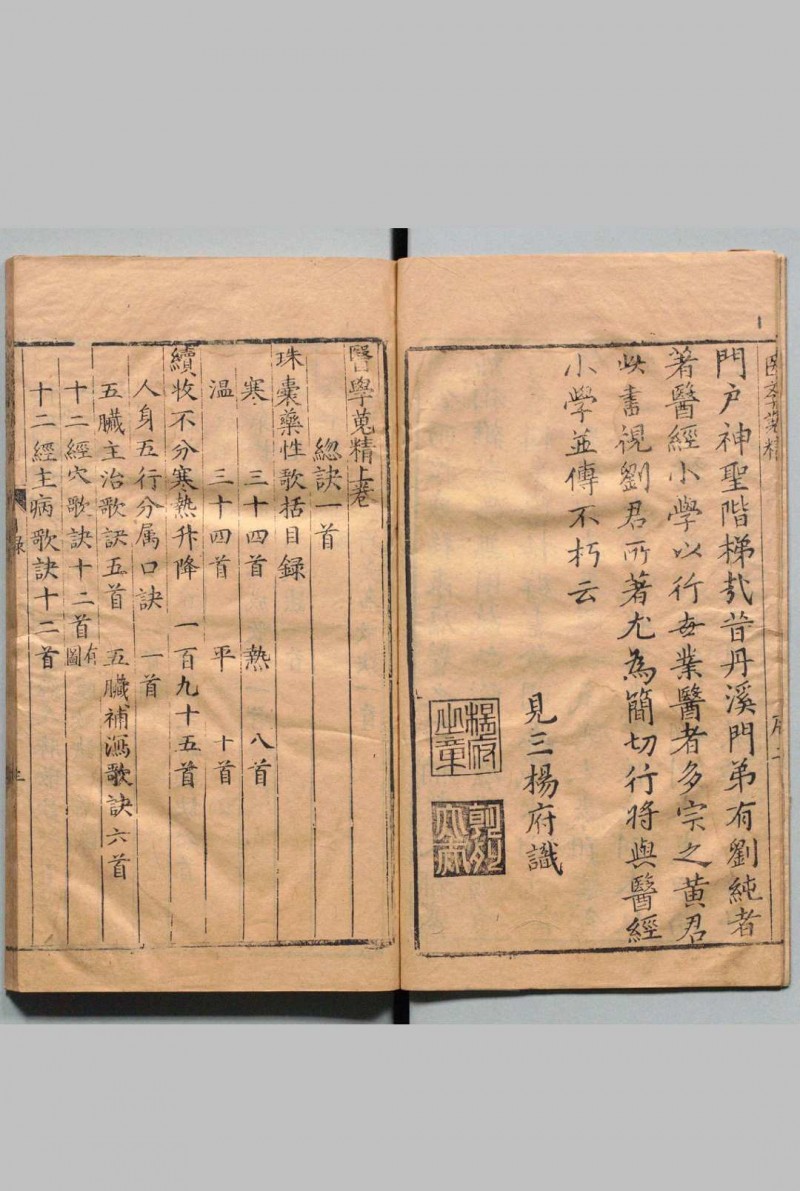 門戶神聖階梯哉昔丹溪門弟有劉純者
著醫經小學以行每業醫者多宗之黃君
此書視劉君所著尤為簡切行將與醫經
小學並傳不朽云
見三楊府識
楊府之章
醫學蒐精上卷
總訣一首
珠囊藥性歌括目録
寒 三十四首 熱 八首
温 三十四首 平 十首
續收不分寒熱升降 一百九十五首
人身五行分属口訣 一首
五臟主治歌訣五首 五臟補瀉歌訣六首
十二經穴歌訣十二首有圖
十二經主病歌訣十二首